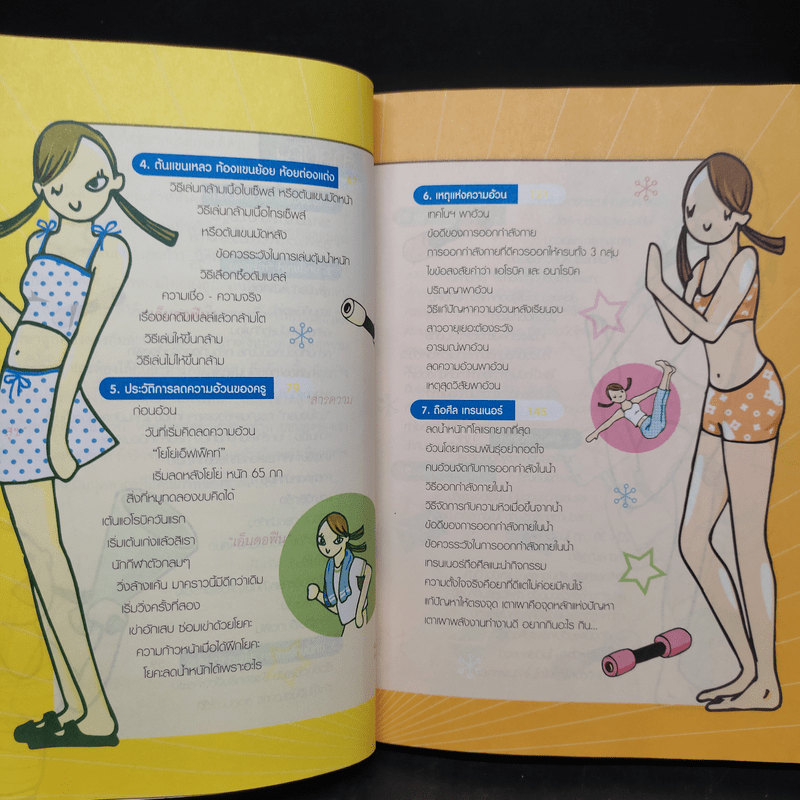 4. ต้นแขนเหลว ท้องแขนย้อย ห้อยต่องแต่ง
วิธีเล่นกล้ามเนื้อไบเซ็พส์ หรือต้นแขนมัดหน้า
วิธีเล่นกล้ามเนื้อไทรเซ็พส์
หรือต้นแขนมัดหลัง
ข้อควรระวังในการเล่นดัมน้ำหนัก
วิธีเลือกซื้อดัมเบลส์
ความเชื่อ - ความจริง
เรื่องยกดัมเบลส์แล้วกล้ามโต
วิธีเล่นให้ขึ้นกล้าม
วิธีเล่นไม่ให้ขึ้นกล้าม
5. ประวัติการลดความอ้วนของครู 79
ก่อนอ้วน
วันที่เริ่มคิดลดความอ้วน
"โยโย่เอ็ฟเฟ็คท์"
เริ่มลดหลังโยโย่ หนัก 65 กก
สิ่งที่หมูทดลองขบคิดได้
เต้นแอโรบิควันแรก
เริ่มเต้นเก่งแล้วสิเรา
นักกีฬาตัวกลมๆ
วิ่งล้างแค้น มาคราวนี้มีดีกว่าเดิม
เริ่มวิ่งครั้งที่สอง
เข่าอักเสบ ซ่อมเข่าด้วยโยคะ
ความก้าวหน้าเมื่อได้ฝึกโยคะ
โยคะลดน้ำหนักได้เพราะอะไร
6. เหตุแห่งความอ้วน
เทคโนฯ พาอ้วน
ข้อดีของการออกกำลังกาย
การออกกำลังกายที่ดีควรออกให้ครบทั้ง 3 กลุ่ม
ไขข้อสงสัยคำว่า แอโรบิค และ อนาโรบิค
ปริญญาพาอ้วน
วิธีแก้ปัญหาความอ้วนหลังเรียนจบ
สาวอายุเยอะต้องระวัง
อารมณ์พาอ้วน
ลดความอ้วนพาอ้วน
เหตุสุดวิสัยพาอ้วน
7. ถือศีล เทรนเนอร์ 145
ลดน้ำหนักที่โลแรกยากที่สุด
อ้วนโดยกรรมพันธุ์อย่าถอดใจ
คนอ้วนจัดกับการออกกำลังในน้ำ
วิธีออกกำลังกายในน้ำ
วิธีจัดการกับความหิวเมื่อขึ้นจากน้ำ
ข้อดีของการออกกำลังกายในน้ำ
ข้อควรระวังในการออกกำลังกายในน้ำ
เทรนเนอร์ถือศีลแนะนำกิจกรรม
ความตั้งใจจริงคือยาที่ดีแต่ไม่ค่อยมีคนใช้
แก้ปัญหาให้ตรงจุด เตาเผาคือจุดหลักแห่งปัญหา
เตาเผาพลังงานทำงานดี อยากกินอะไร กิน...